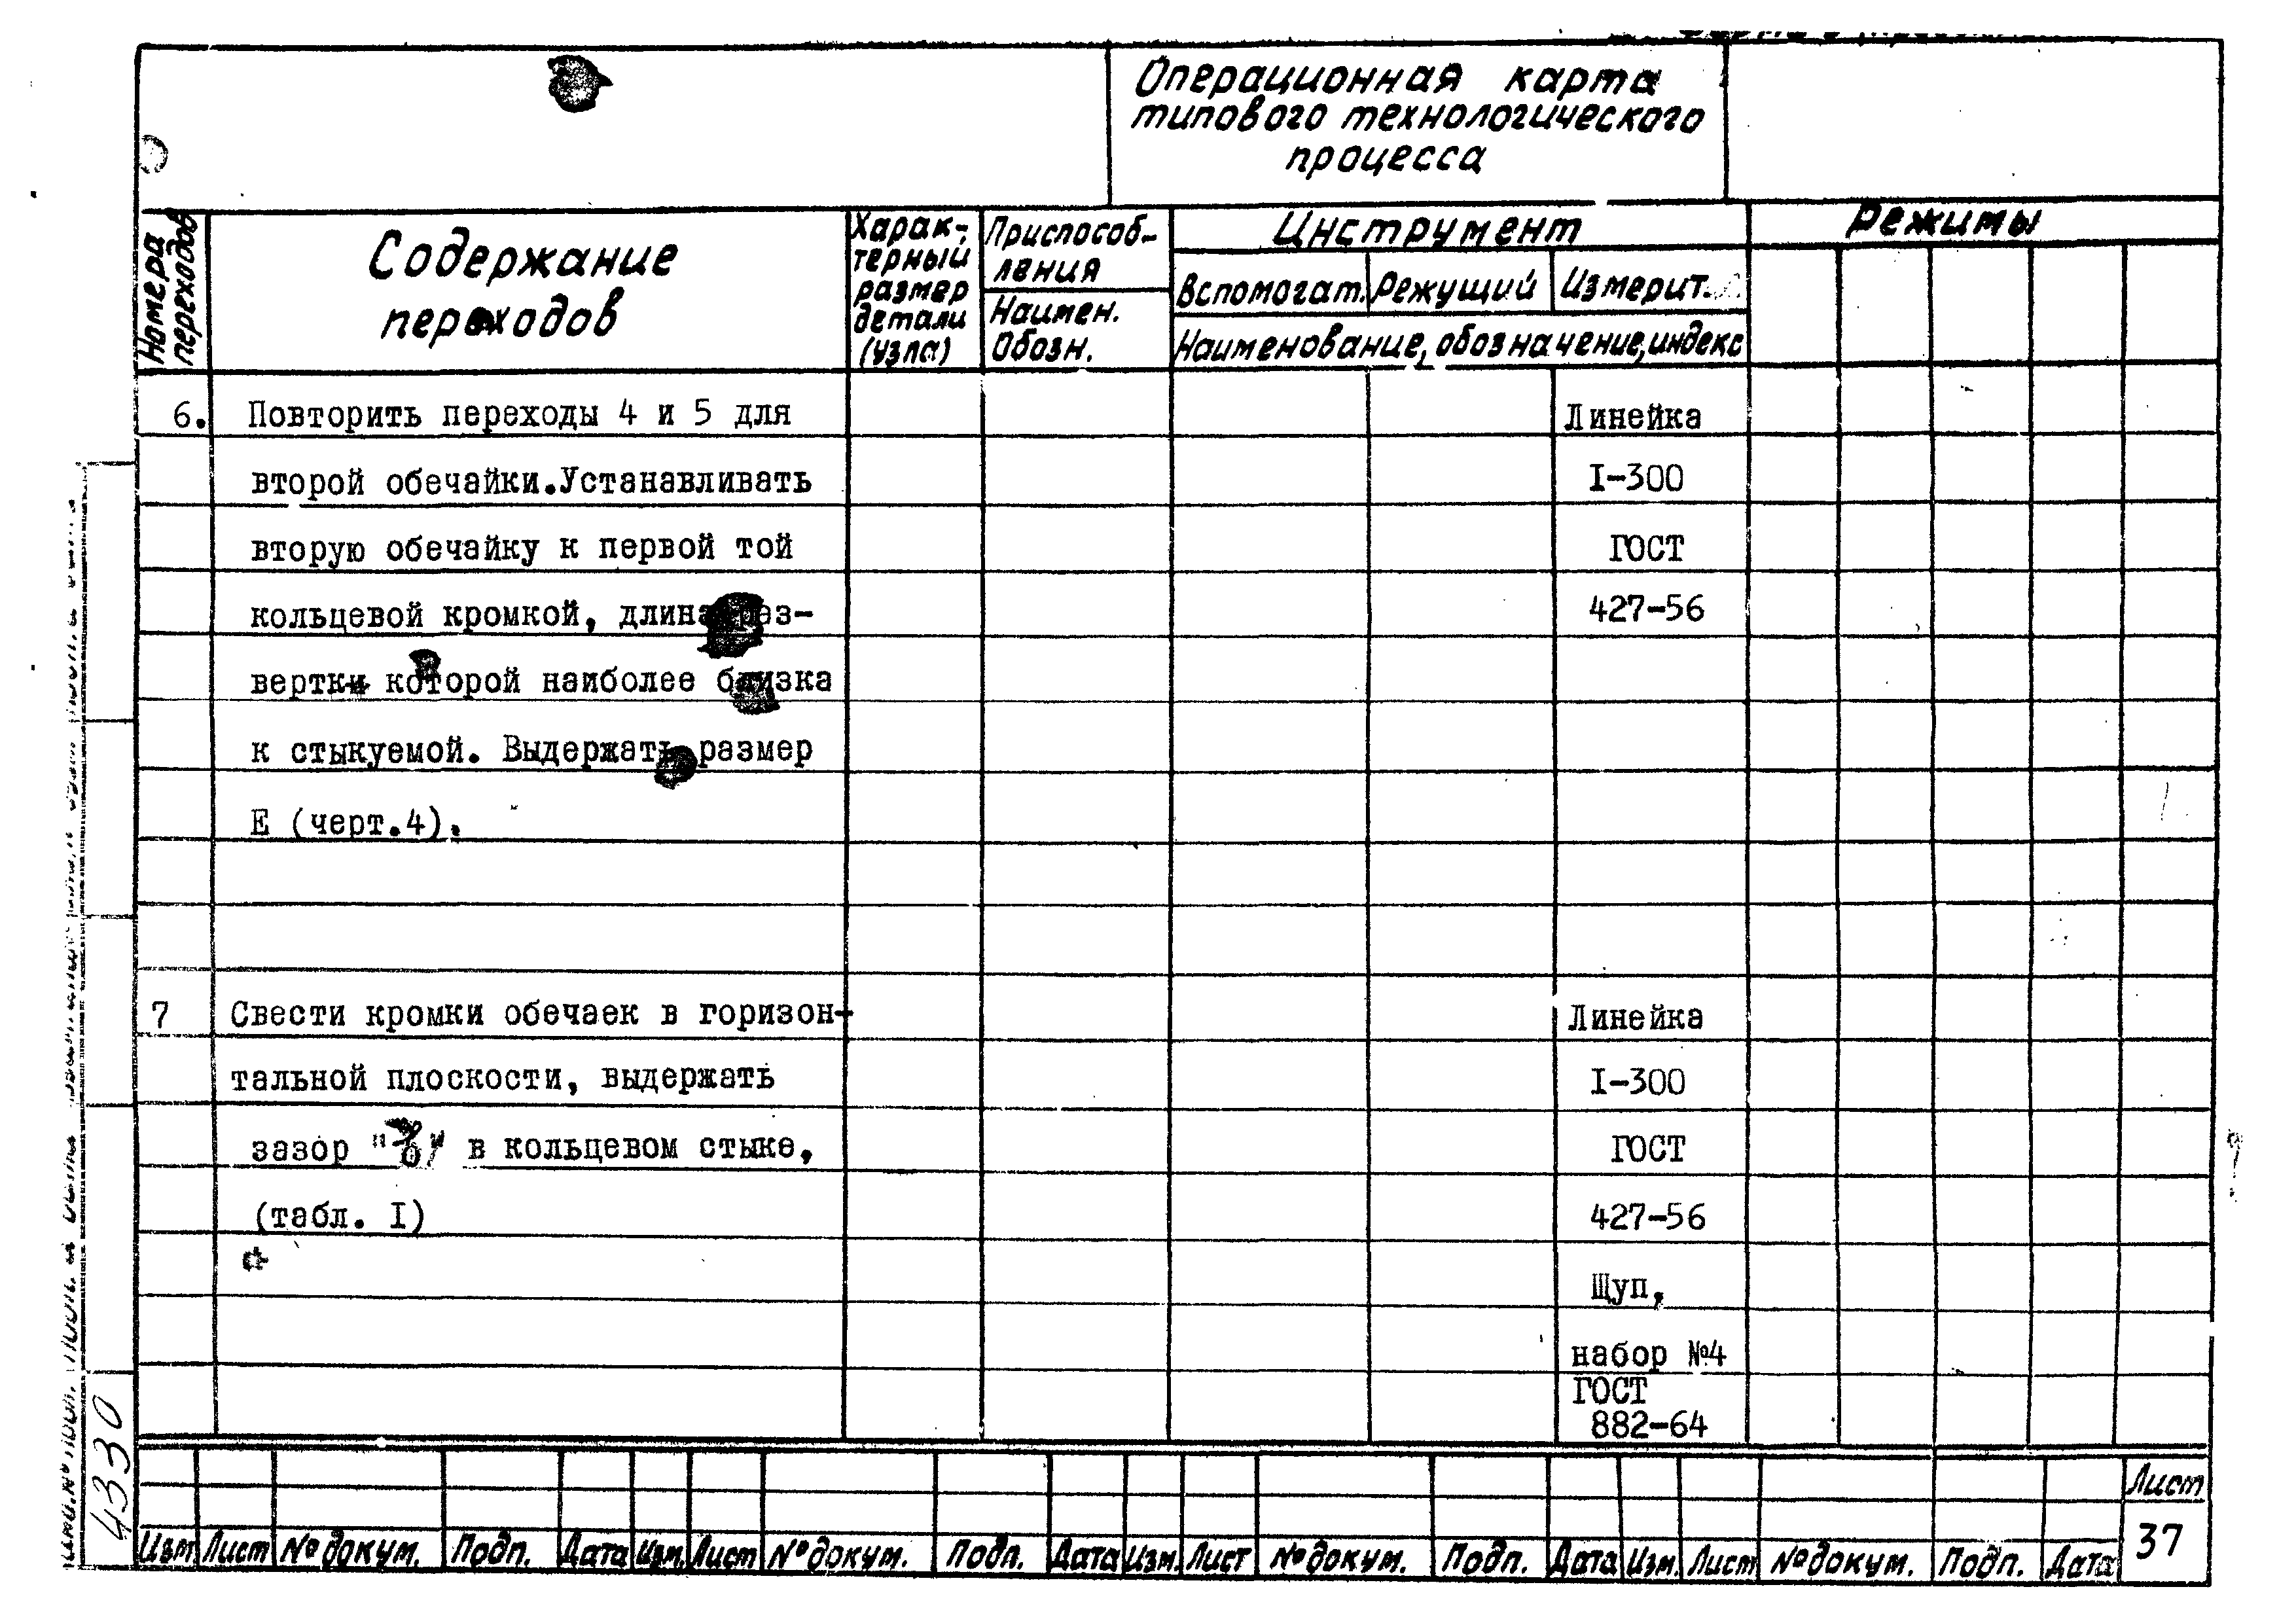 Операционная карта
типового технологического
процесса
Номера
переходов
Содержание
переходов
Харак-
терный
размер
детали
(узла)
Приспособ-
ления
Наимен.
Обозн.
Инструмент
Вспомогат.
Режущий
Измерит.
Наименование, обозначение, индекс
Режимы
6. Повторить переходы 4 и 5 для
второй обечайки.Устанавливать
вторую обечайку к первой той
кольцевой кромкой, длина раз-
вертки которой наиболее близка
к стыкуемой. Выдержать размер
Е (черт.4).
Линейка
I-300
ГОСТ
427-56
7 Свести кромки обечаек в горизон-
тальной плоскости, выдержать
зазор "б" в кольцевом стыке,
(табл. I)
Линейка
I-300
ГОСТ
427-56
Щуп,
набор №4
ГОСТ
882-64
4330
Изм Лист № докум. Подп. Дата Изм. Лист № докум. Подп. Дата Изм. Лист № докум. Подп. Дата Изм. Лист № докум. Подп. Дата
Лист
37